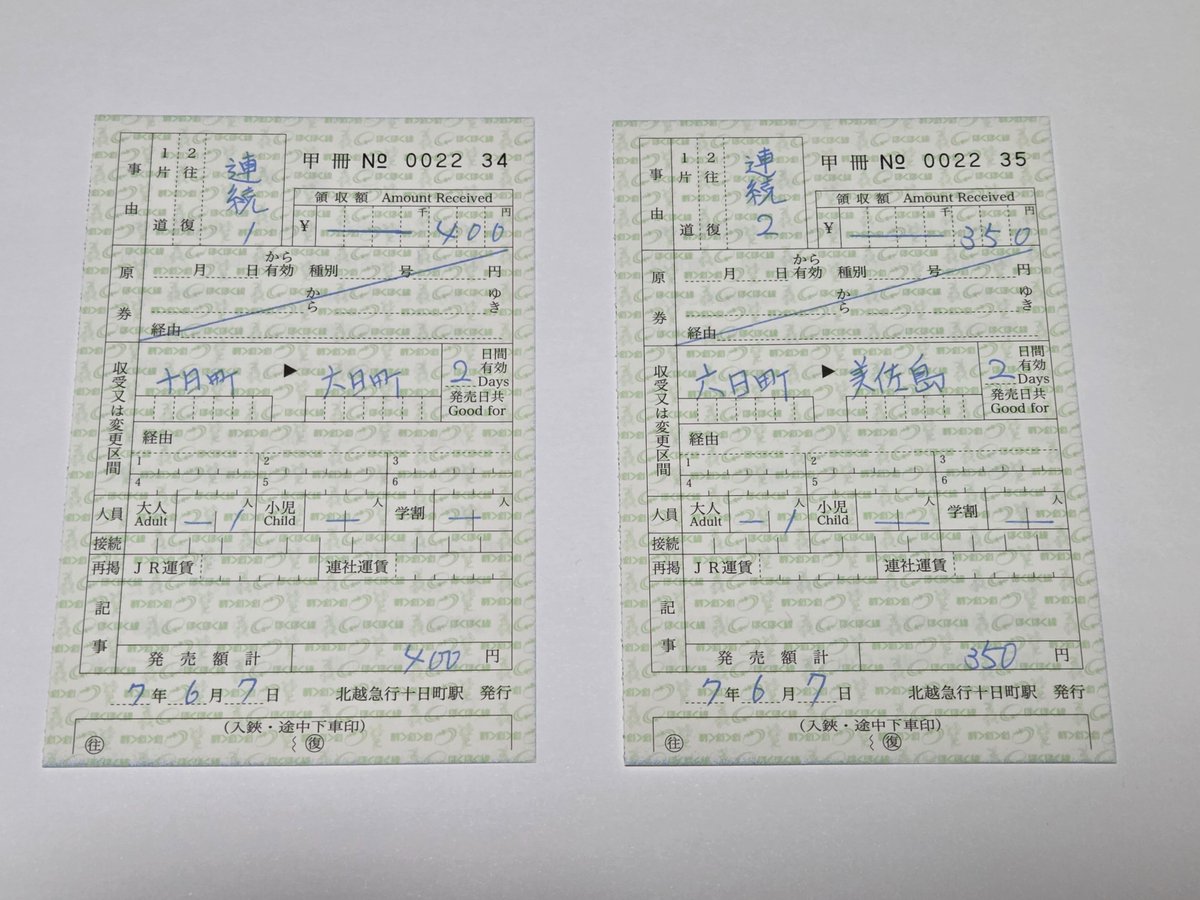 事由
1片道
2往復
連続1
甲冊 № 0022 34
領収額 Amount Received
¥ 千 400 円
原券
月 日 から有効 種別 号 円
から ゆき
経由
収受又は変更区間
十日町 ▶ 六日町
2 日間有効 Days
発売日共 Good for
経由
1 2 3
4 5 6
人員 大人 Adult 1 人 小児 Child 学割 人
接続
再掲 JR運賃 連社運賃
記事
発売額計 400 円
7年 6月 7日 北越急行十日町駅 発行
(入鋏・途中下車印)
往 復
事由
1片道
2往復
連続2
甲冊 № 0022 35
領収額 Amount Received
¥ 千 350 円
原券
月 日 から有効 種別 号 円
から ゆき
経由
収受又は変更区間
六日町 ▶ 美佐島
2 日間有効 Days
発売日共 Good for
経由
1 2 3
4 5 6
人員 大人 Adult 1 人 小児 Child 学割 人
接続
再掲 JR運賃 連社運賃
記事
発売額計 350 円
7年 6月 7日 北越急行十日町駅 発行
(入鋏・途中下車印)
往 復